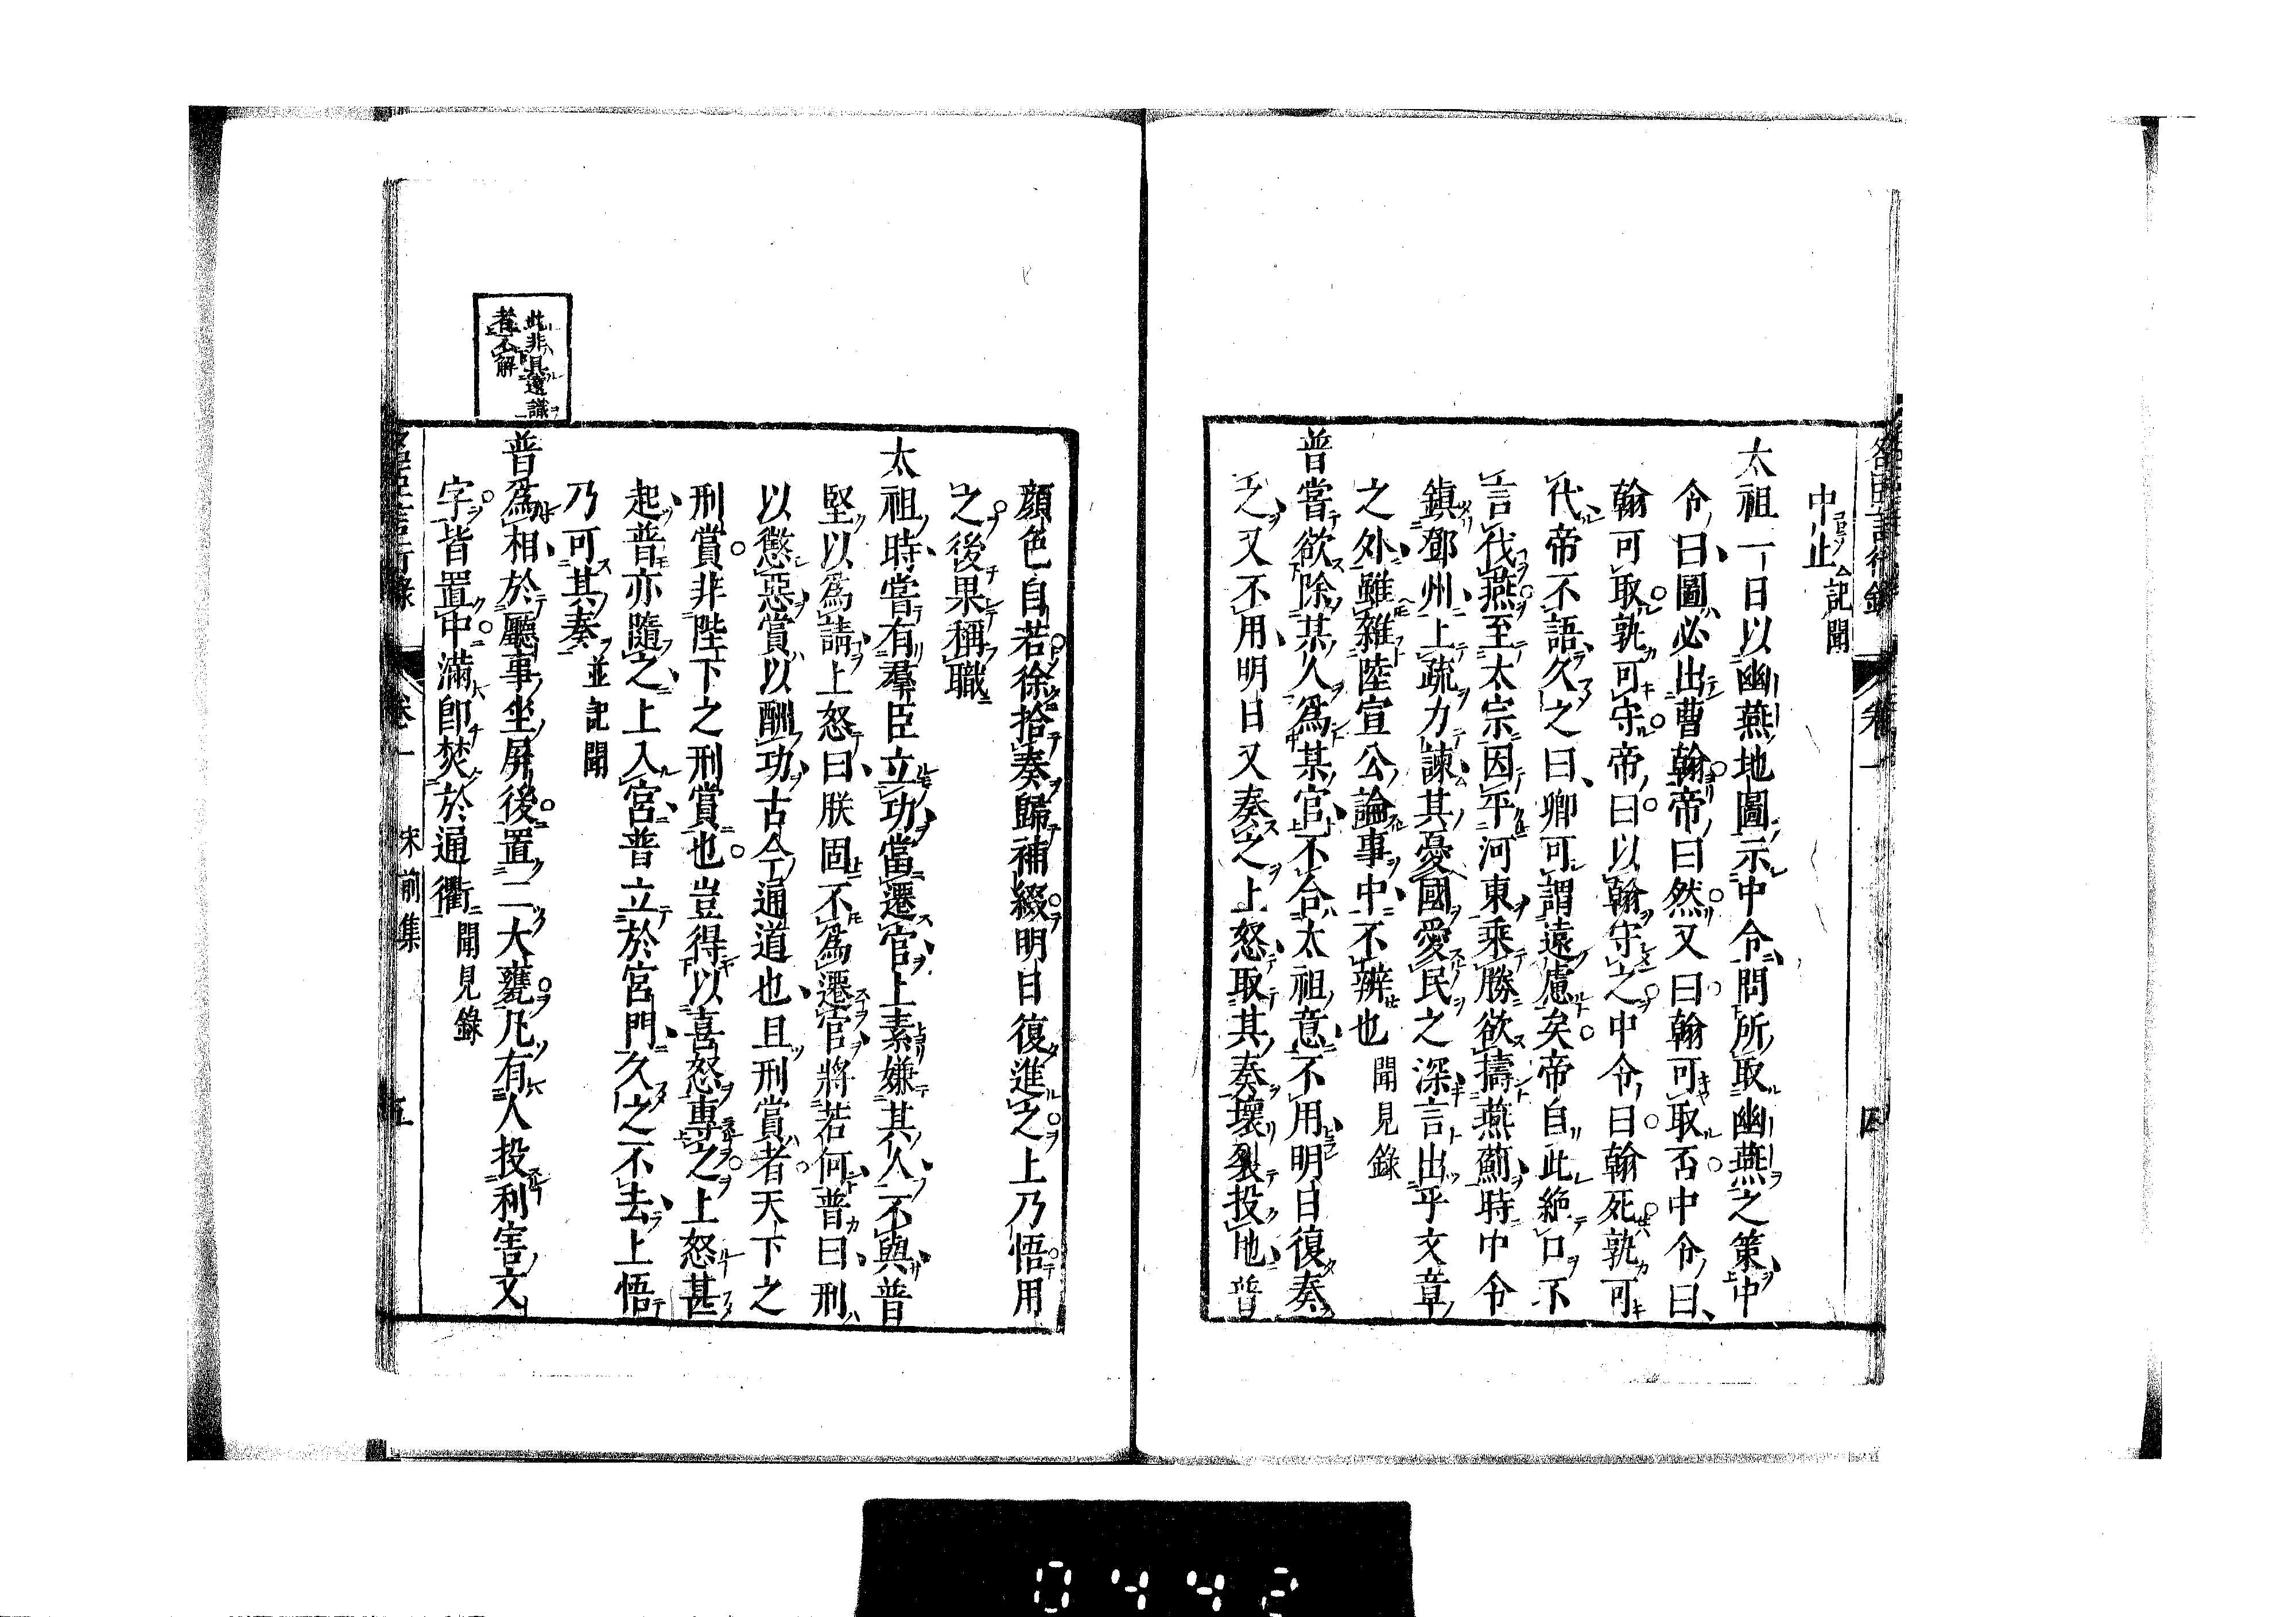 名臣言行錄 卷一 四
中止 記聞
太祖一日以幽燕地圖示中令問所取幽燕之策中
令曰圖必出曹翰帝曰然又曰翰可取否中令曰
翰可取孰可守帝曰以翰守之中令曰翰死孰可
代帝不語久之曰卿可謂遠慮矣帝自此絕口不
言伐燕至太宗因平河東乘勝欲擣燕薊時中令
鎮鄧州上疏力諫其憂國愛民之深言出乎文章
之外雖雜陸宣公論事中不辨也 聞見錄
普嘗欲除某人爲某官不合太祖意不用明日復奏
之又不用明日又奏之上怒取其奏壞裂投地普
顏色自若徐拾奏歸補綴明日復進之上乃悟用
之後果稱職
太祖時嘗有羣臣立功當遷官上素嫌其人不與普
堅以爲請上怒曰朕固不爲遷官將若何普曰刑
以懲惡賞以酬功古今通道也且刑賞者天下之
刑賞非陛下之刑賞也豈得以喜怒專之上怒甚
起普亦隨之上入宮普立於宮門久之不去上悟
乃可其奏 並記聞
此非具遠識
者不解
普爲相於廳事坐屏後置二大甕凡有人投利害文
字皆置中滿卽焚於通衢 聞見錄
名臣言行錄 卷一 宋前集 五
0442